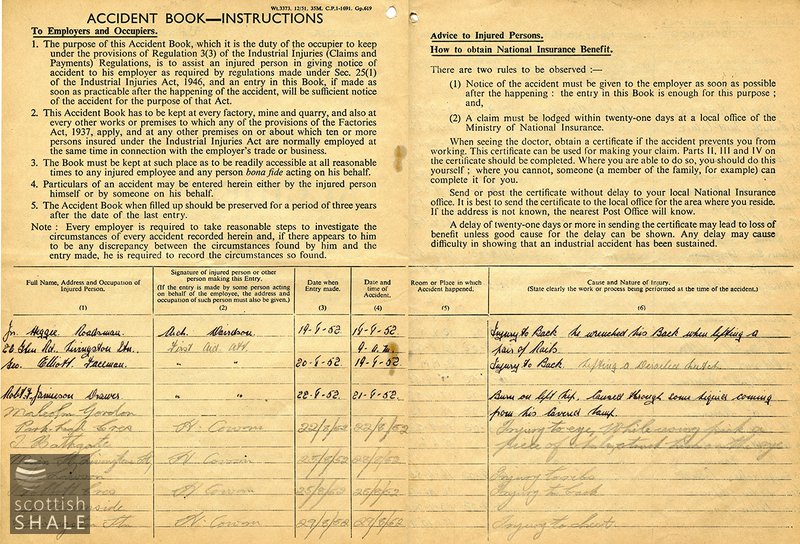 Wt.3373. 12/51. 35M. C.P.I-1691. Gp.619
ACCIDENT BOOK—INSTRUCTIONS
To Employers and Occupiers.
1. The purpose of this Accident Book, which it is the duty of the occupier to keep
under the provisions of Regulation 3(3) of the Industrial Injuries (Claims and
Payments) Regulations, is to assist an injured person in giving notice of
accident to his employer as required by regulations made under Sec. 25(1)
of the Industrial Injuries Act, 1946, and an entry in this Book, if made as
soon as practicable after the happening of the accident, will be sufficient notice
of the accident for the purpose of that Act.
2. This Accident Book has to be kept at every factory, mine and quarry, and also at
every other works or premises to which any of the provisions of the Factories
Act, 1937, apply, and at any other premises on or about which ten or more
persons insured under the Industrial Injuries Act are normally employed at
the same time in connection with the employer's trade or business.
3. The Book must be kept at such place as to be readily accessible at all reasonable
times to any injured employee and any person bona fide acting on his behalf.
4. Particulars of an accident may be entered herein either by the injured person
himself or by someone on his behalf.
5. The Accident Book when filled up should be preserved for a period of three years
after the date of the last entry.
Note : Every employer is required to take reasonable steps to investigate the
circumstances of every accident recorded herein and, if there appears to him
to be any discrepancy between the circumstances found by him and the
entry made, he is required to record the circumstances so found.
Advice to Injured Persons.
How to obtain National Insurance Benefit.
There are two rules to be observed :—
(1) Notice of the accident must be given to the employer as soon as possible
after the happening : the entry in this Book is enough for this purpose ;
and,
(2) A claim must be lodged within twenty-one days at a local office of the
Ministry of National Insurance.
When seeing the doctor, obtain a certificate if the accident prevents you from
working. This certificate can be used for making your claim. Parts II, III and IV on
the certificate should be completed. Where you are able to do so, you should do this
yourself ; where you cannot, someone (a member of the family, for example) can
complete it for you.
Send or post the certificate without delay to your local National Insurance
office. It is best to send the certificate to the local office for the area where you reside.
If the address is not known, the nearest Post Office will know.
A delay of twenty-one days or more in sending the certificate may lead to loss of
benefit unless good cause for the delay can be shown. Any delay may cause
difficulty in showing that an industrial accident has been sustained.
Full Name, Address and Occupation of
Injured Person.
(1)
Signature of injured person or other
person making this Entry.
(If the entry is made by some person acting
on behalf of the employee, the address and
occupation of such person must also be given.)
(2)
Date when
Entry made.
(3)
Date and
time of
Accident.
(4)
Room or Place in which
Accident happened.
(5)
Cause and Nature of Injury.
(State clearly the work or process being performed at the time of the accident.)
(6)
Jn. Heggie Roadsman. Arch. Davidson 19-9-52 19-9-52 Injury to Back he wrenched his Back when lifting a
Rd., Livingston Stn. First Aid Att pair of Rails.
Geo. Elliott Faceman " " 20-9-52 19-9-52 Injury to Back. Lifting a Derailed Hutch.
Robt. Jamieson Drawer " " 22-9-52 21-9-52 Burn on left hip, caused through some liquid coming
from his lamp.
Malcolm Gordon
Parkhead Cres H. Cowan 22/8/52 22/8/52 Injury to eye, While using pick a
T. Bathgate piece of shale struck him on the eye
H. Cowan
Injury to ribs
Cres H Cowan 25/8/52 25/8/52 Injury to back
H. Cowan 29/8/52 Injury to
scottish
SHALE